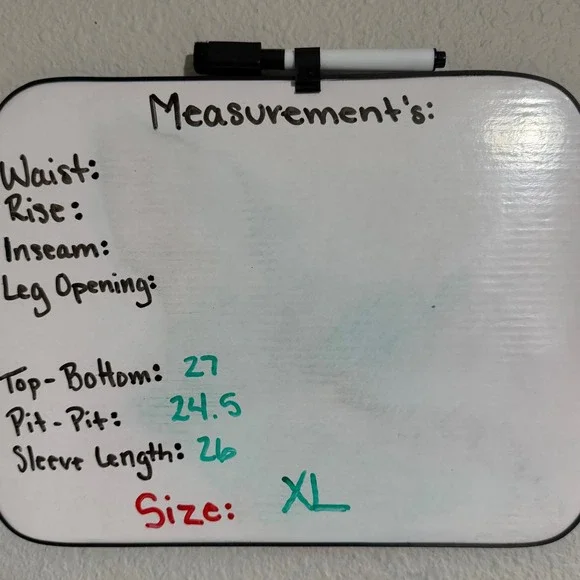 Measurement's:
Waist:
Rise:
Inseam:
Leg Opening:
Top-Bottom: 27
Pit-Pit: 24.5
Sleeve Length: 26
Size: XL